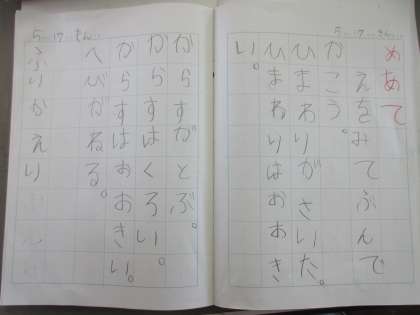 5.17.きん..
めあて
えをみてぶんで
かこう。
ひまわりがさいた。
ひまわりはおおき
い。
5.17.きん..
からすがとぶ。
からすはくろい。
からすはおおきい。
へびがねる。
ふりかえり